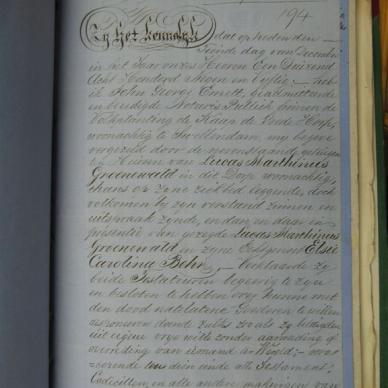 194
Zij Het Kennelijk dat op heden den
tiende dag van December
in het Jaar onzes Heeren Een Duizend
Acht Honderd Negen en Vyftig; heb
ik John George Emett, geadmitteerde
en beëdigde Notaris Publiek binnen de
Volkplanting de Kaap de Goede Hoop,
woonachtig in Swellendam, my begeven
vergezeld door de onderstaande getuigen
ten Huizen van Lucas Marthinus
Groenewald in dit Dorp woonachtig,
thans op zyne ziekbed leggende, doch
volkomen by zyn verstand zinnen en
uitspraak zynde, en dan en daar in
presentie van gezegde Lucas Marthinus
Groenewald en zyne Echtgenoot Elsie
Carolina Behr, Verklaarde zy
beide Testateuren begeerig te zyn
en besloten te hebben over hunne met
den dood natelatene Goederen te willen
disponeeren doende zulks zoo als zy betuigden
uit eigene vrye wil zonder aanrading of
overreding van iemand ter Wereld;
dein einde alle Testament;
Codicillen, en alle andere makingen van